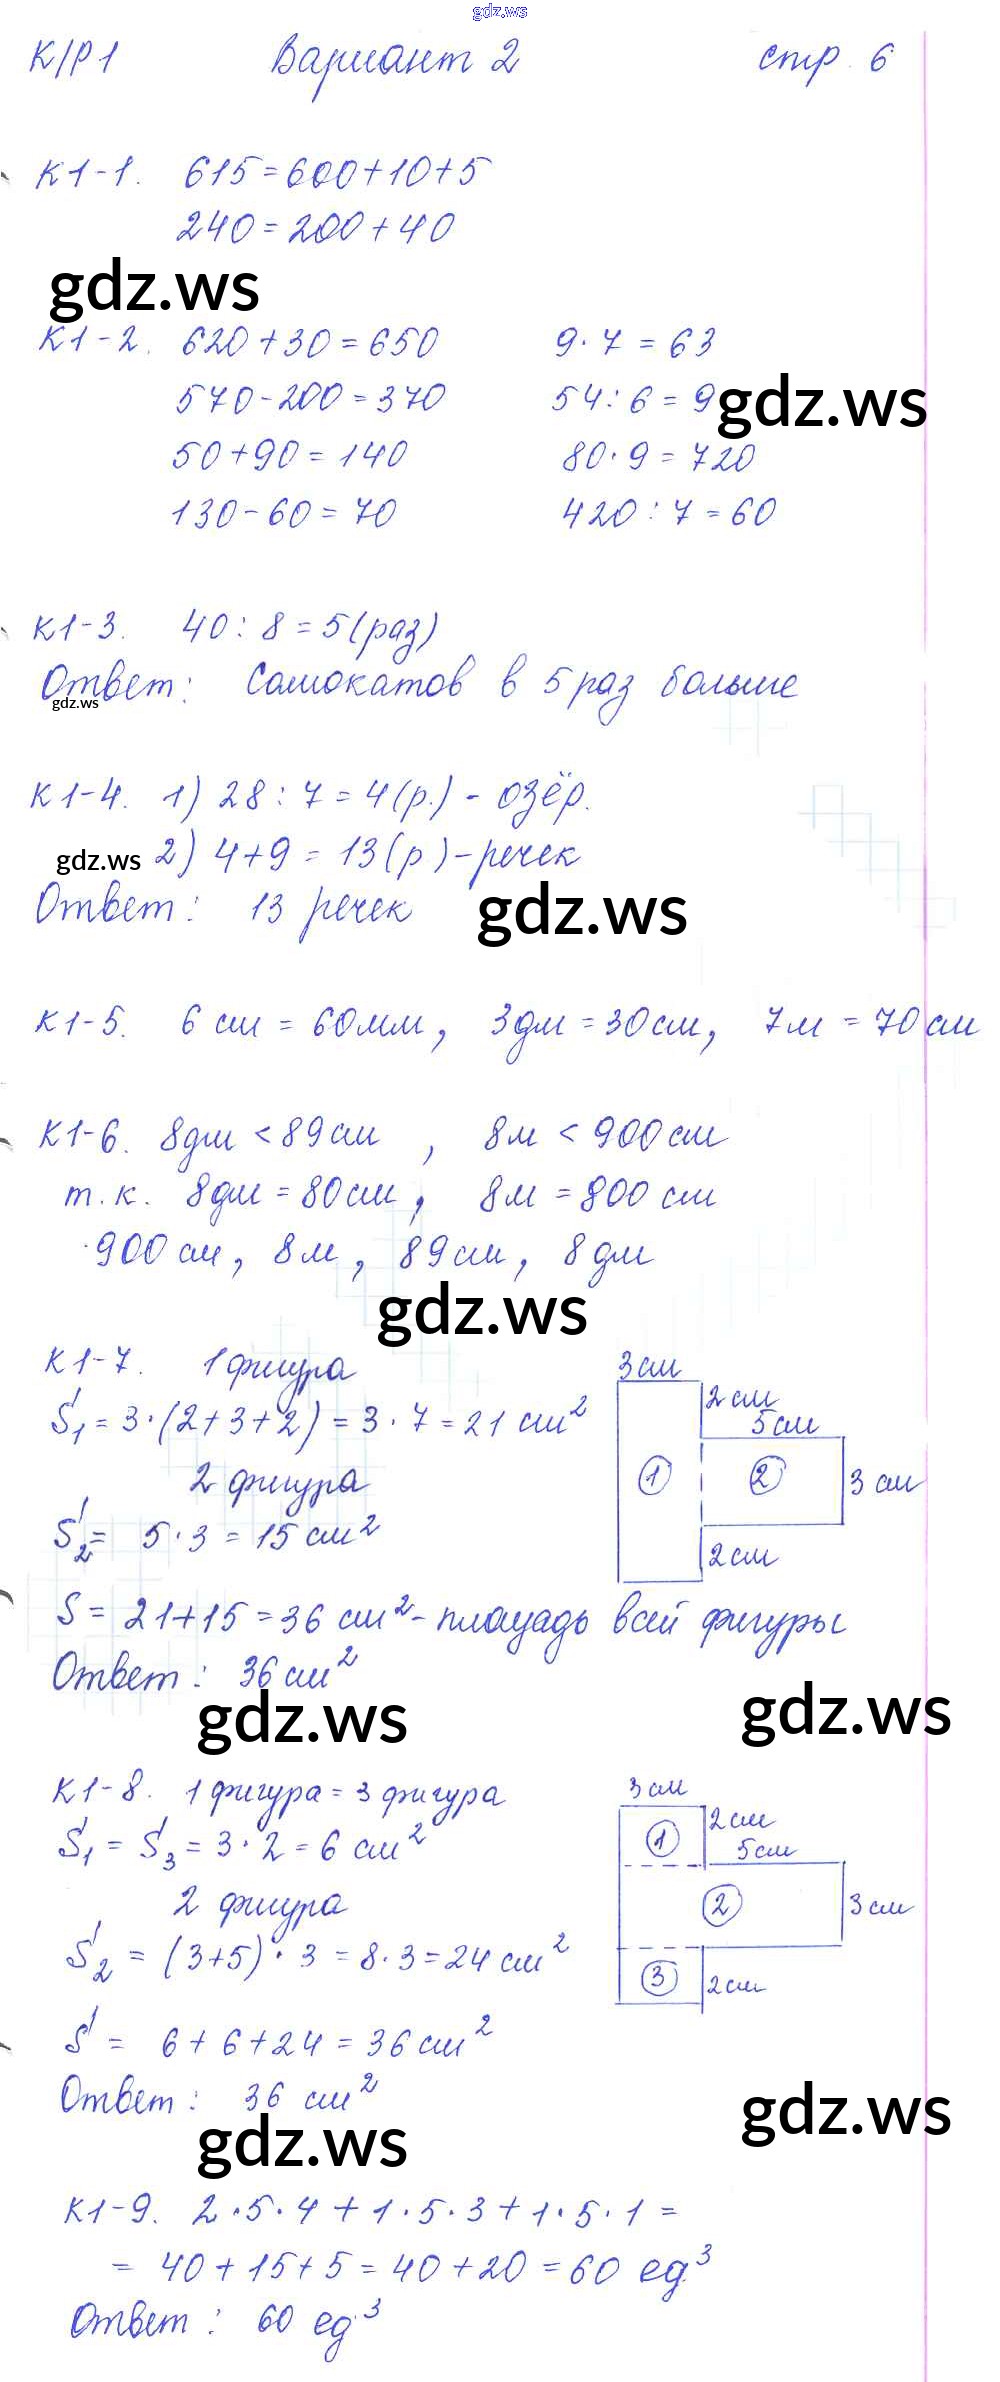 gdz.ws
К/Р1 Вариант 2 стр. 6
К1-1. 615=600+10+5
240=200+40
gdz.ws
К1-2. 620+30=650 9·7=63
570-200=370 54:6=9
gdz.ws
50+90=140 80·9=720
130-60=70 420:7=60
К1-3. 40:8=5(раз)
Ответ: Самокатов в 5 раз больше
gdz.ws
К1-4. 1) 28:7=4(р.)-озёр.
gdz.ws 2) 4+9=13(р)-речек
Ответ: 13 речек
gdz.ws
К1-5. 6 см = 60мм, 3дм=30см, 7м=70см
К1-6. 8дм<89см, 8м<900см
т.к. 8дм=80см, 8м=800 см
900 см, 8м, 89см, 8дм
gdz.ws
К1-7. 1 фигура
S₁=3·(2+3+2)=3·7=21 см²
2 фигура
S₂= 5·3=15 см²
3см
2см
5см
1
2
3 см
2см
S= 21+15=36 см²-площадь всей фигуры
Ответ: 36 см²
gdz.ws
gdz.ws
К1-8. 1 фигура=3 фигура
S₁=S₃=3·2=6 см²
2 фигура
S₂=(3+5)·3=8·3=24 см²
3 см
2см
5см
1
2
3 см
3
2см
S= 6+6+24=36 см²
Ответ: 36 см²
gdz.ws
gdz.ws
К1-9. 2·5·4+1·5·3+1·5·1=
= 40+15+5=40+20=60 ед³
Ответ: 60 ед³